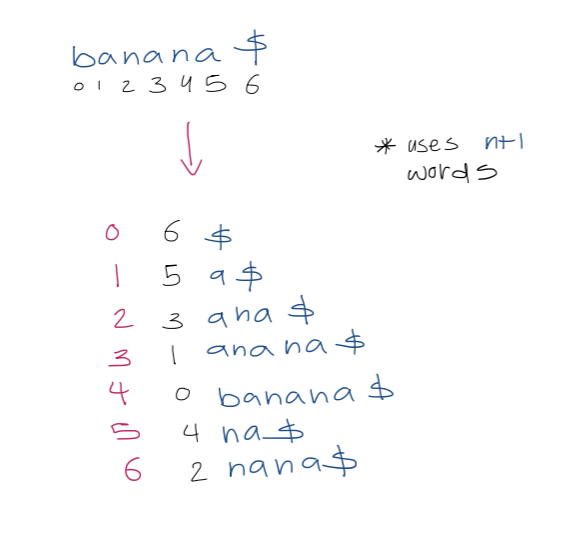 banana $
0 1 2 3 4 5 6
* uses n+1
words
0 6 $
1 5 a$
2 3 ana $
3 1 anana $
4 0 banana $
5 4 na$
6 2 nana$